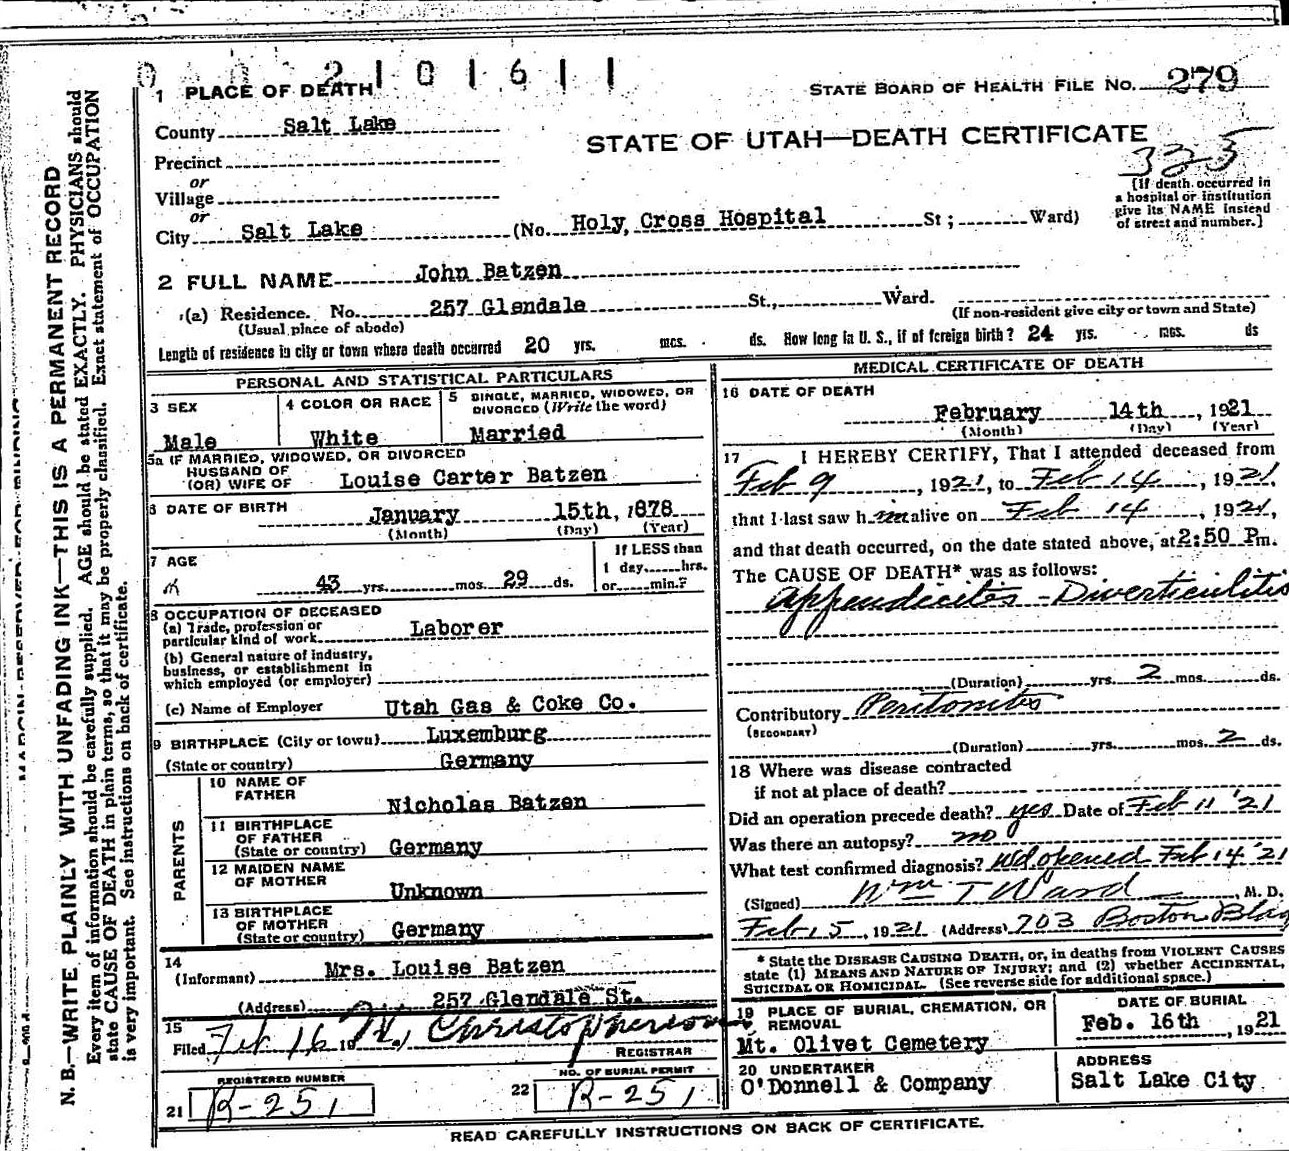 2101611
1 PLACE OF DEATH
STATE BOARD OF HEALTH FILE NO. 279
County Salt Lake
STATE OF UTAH—DEATH CERTIFICATE
325
Precinct
or
Village
or
City Salt Lake (No. Holy Cross Hospital St; Ward)
[If death occurred in
a hospital or institution
give its NAME instead
of street and number.]
2 FULL NAME John Batzen
(a) Residence. No. 257 Glendale St., Ward.
(Usual place of abode) (If non-resident give city or town and State)
Length of residence in city or town where death occurred 20 yrs. mos. ds. How long in U. S., if of foreign birth? 24 yrs. mos. ds
PERSONAL AND STATISTICAL PARTICULARS
3 SEX
Male
4 COLOR OR RACE
White
5 SINGLE, MARRIED, WIDOWED, OR
DIVORCED (Write the word)
Married
5a IF MARRIED, WIDOWED, OR DIVORCED
HUSBAND OF
(OR) WIFE OF Louise Carter Batzen
6 DATE OF BIRTH January 15th, 1878
(Month) (Day) (Year)
7 AGE
43 yrs. mos. 29 ds.
If LESS than
1 day, hrs.
or min.?
8 OCCUPATION OF DECEASED
(a) Trade, profession or
particular kind of work Laborer
(b) General nature of industry,
business, or establishment in
which employed (or employer)
(c) Name of Employer Utah Gas & Coke Co.
9 BIRTHPLACE (City or town) Luxemburg
(State or country) Germany
PARENTS
10 NAME OF
FATHER Nicholas Batzen
11 BIRTHPLACE
OF FATHER
(State or country) Germany
12 MAIDEN NAME
OF MOTHER Unknown
13 BIRTHPLACE
OF MOTHER
(State or country) Germany
14
(Informant) Mrs. Louise Batzen
(Address) 257 Glendale St.
15
Filed Feb 16 19 Christopherson
REGISTRAR
REGISTERED NUMBER
21 R-251
NO. OF BURIAL PERMIT
22 R-251
MEDICAL CERTIFICATE OF DEATH
16 DATE OF DEATH
February 14th, 1921
(Month) (Day) (Year)
17 I HEREBY CERTIFY, That I attended deceased from
Feb 9, 1921, to Feb 14, 1921,
that I last saw him alive on Feb 14, 1921,
and that death occurred, on the date stated above, at 2:50 Pm.
The CAUSE OF DEATH* was as follows:
Appendecites - Diverticulitis
(Duration) yrs. 2 mos. ds.
Contributory Peritonites
(SECONDARY)
(Duration) yrs. mos. 2 ds.
18 Where was disease contracted
if not at place of death?
Did an operation precede death? yes Date of Feb 11 '21
Was there an autopsy? no
What test confirmed diagnosis? opened Feb 14 '21
(Signed) Wm T Ward, M. D.
Feb 15, 1921 (Address) 703 Boston Bldg
* State the DISEASE CAUSING DEATH, or, in deaths from VIOLENT CAUSES
state (1) MEANS AND NATURE OF INJURY; and (2) whether ACCIDENTAL,
SUICIDAL OR HOMICIDAL. (See reverse side for additional space.)
19 PLACE OF BURIAL, CREMATION, OR
REMOVAL
Mt. Olivet Cemetery
DATE OF BURIAL
Feb. 16th, 1921
20 UNDERTAKER
O'Donnell & Company
ADDRESS
Salt Lake City
READ CAREFULLY INSTRUCTIONS ON BACK OF CERTIFICATE.
N. B.—WRITE PLAINLY WITH UNFADING INK—THIS IS A PERMANENT RECORD
Every item of information should be carefully supplied. AGE should be stated EXACTLY. PHYSICIANS should
state CAUSE OF DEATH in plain terms, so that it may be properly classified. Exact statement of OCCUPATION
is very important. See instructions on back of certificate.